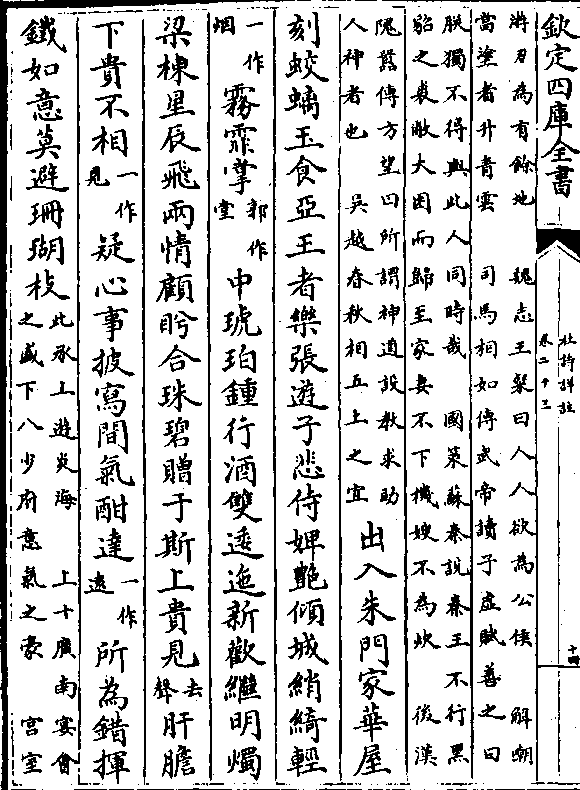 欽定四庫全書
杜詩詳註
卷二十三
十四
將刃為有餘地 魏志王粲曰人人欲為公侯 解嘲
當塗者升青雲 司馬相如傳武帝讀子虛賦善之曰
朕獨不得與此人同時哉 國策蘇秦說秦王不行黑
貂之裘敝大困而歸至家妻不下機嫂不為炊 後漢
隗囂傳方望曰所謂神道設教求助
人神者也 吳越春秋相五土之宜
出入朱門家華屋
刻蛟螭玉食亞王者樂張遊子悲侍婢艷傾城綃綺輕
一作烟霧霏掌郭作室中琥珀鍾行酒雙逶迤新歡繼明燭
梁棟星辰飛兩情顧盻合珠碧贈于斯上貴見去聲肝膽
下貴不相一作見疑心事披寫間氣酣達一作遠所為錯揮
鐵如意莫避珊瑚枝
此承上遊炎海 上十廣南宴會
之盛下八少府意氣之豪 宮室